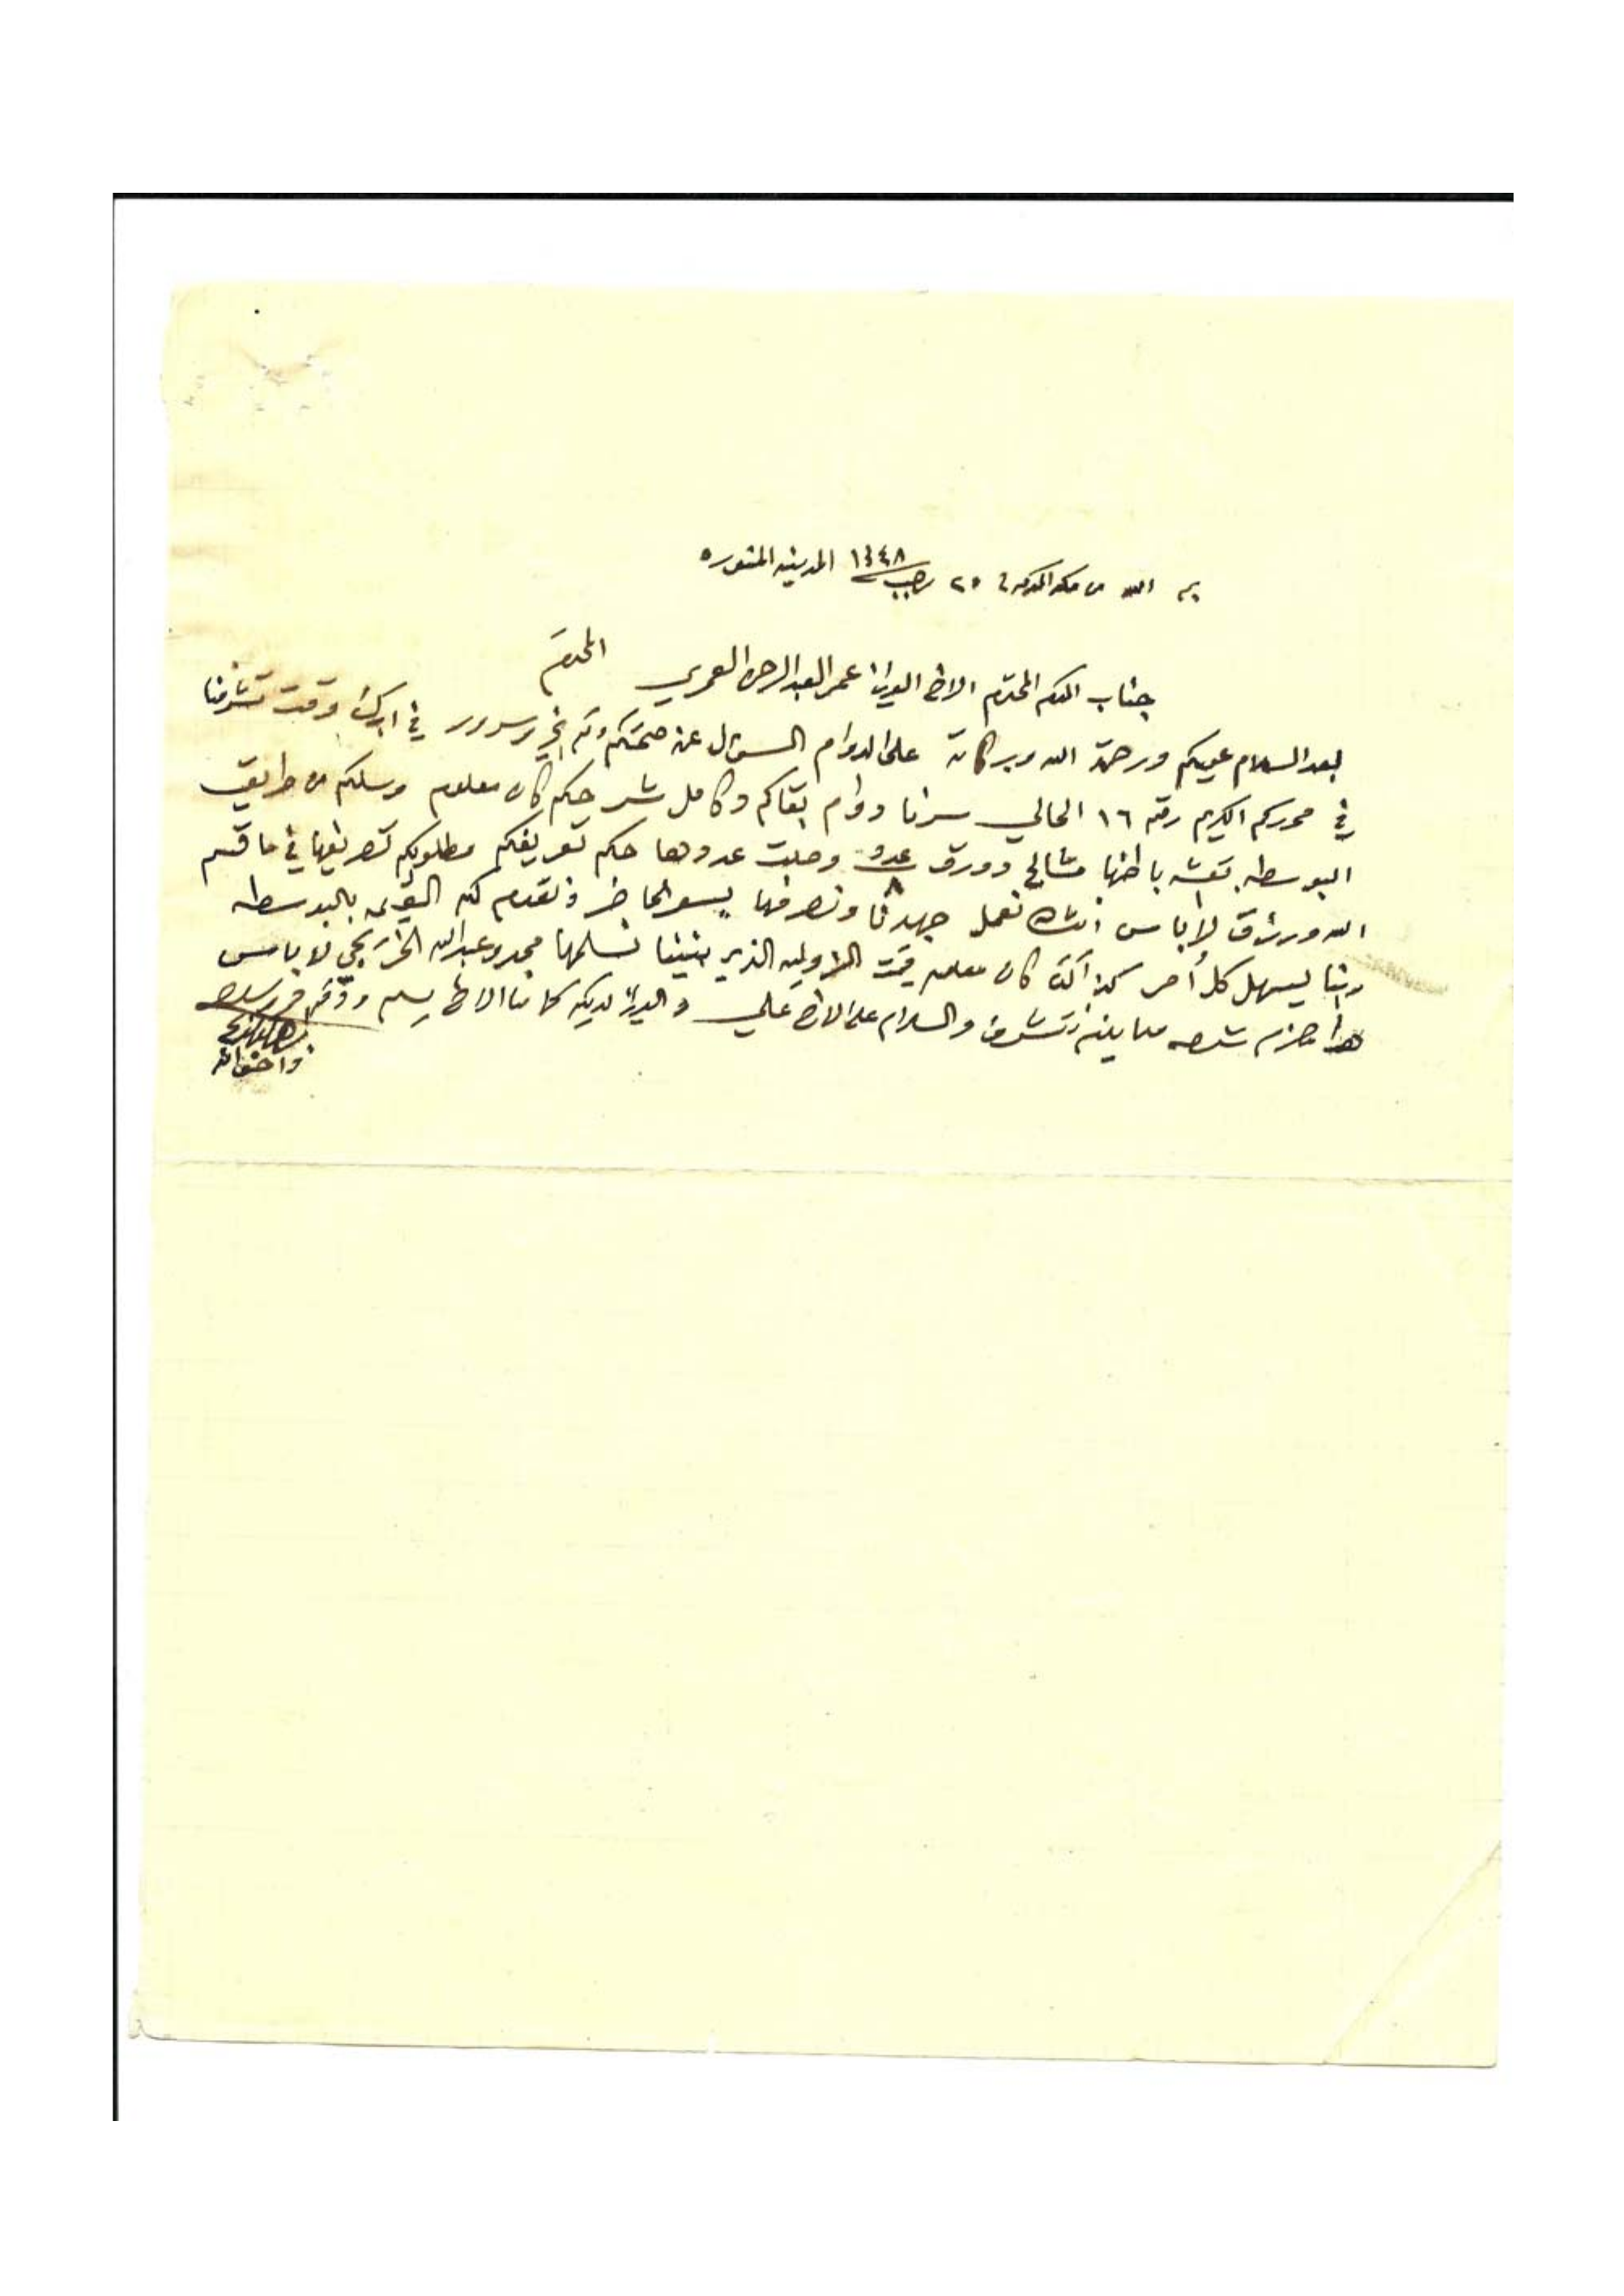 بسم الله من مكة المكرمه في ٢٥ رجب ١٣٤٨ المدينه المنوره
جناب المكرم المحترم الاخ العزيز عمر العبدالرحمن العمري المحترم
بعد السلام عليكم ورحمة الله وبركاته على الدوام السؤال عن صحتكم وانتم بخير وسرور في ابرك وقت تشرفنا
في محرركم الكريم رقم ١٦ الحالي سرنا دوام بقاكم وكامل شرحكم كان معلوم وسلكم من طريق
البوسطه بقشه باطنها مشالح وورق عدد ٨ وصلت عددها حكم تعريفكم مطلوبكم تصريفها في ما قسم
الله ورزق لا باس انشاء الله نعمل جهدنا ونصرفها بسعر الحاضر ونقدم لكم القيمه بالبوسطه
ربنا يسهل كل أمر كان معلوم قيمت الاوليه الذي نسلمها محمد وعبدالله الخريجي لا باس
هذا مالزم شرفونا والسلام على الاخ علي والعزيز لديكم كما منا الاخ يسلم ودمتم
واخوانه